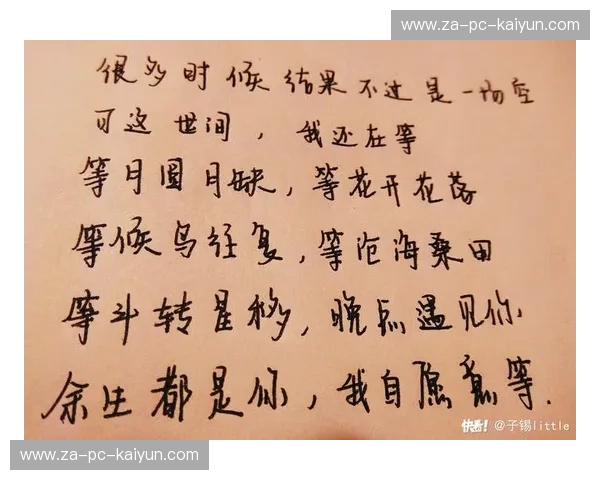 www.za-pc-kaiyun.com
很多时候结果不过是一场空
可这世间，我还在等
等月圆月缺，等花开花落
等候鸟往复，等沧海桑田
等斗转星移，晚点遇见你
余生都是你，我自愿意等.
快看! @子锡little
www.za-pc-kaiyun.com